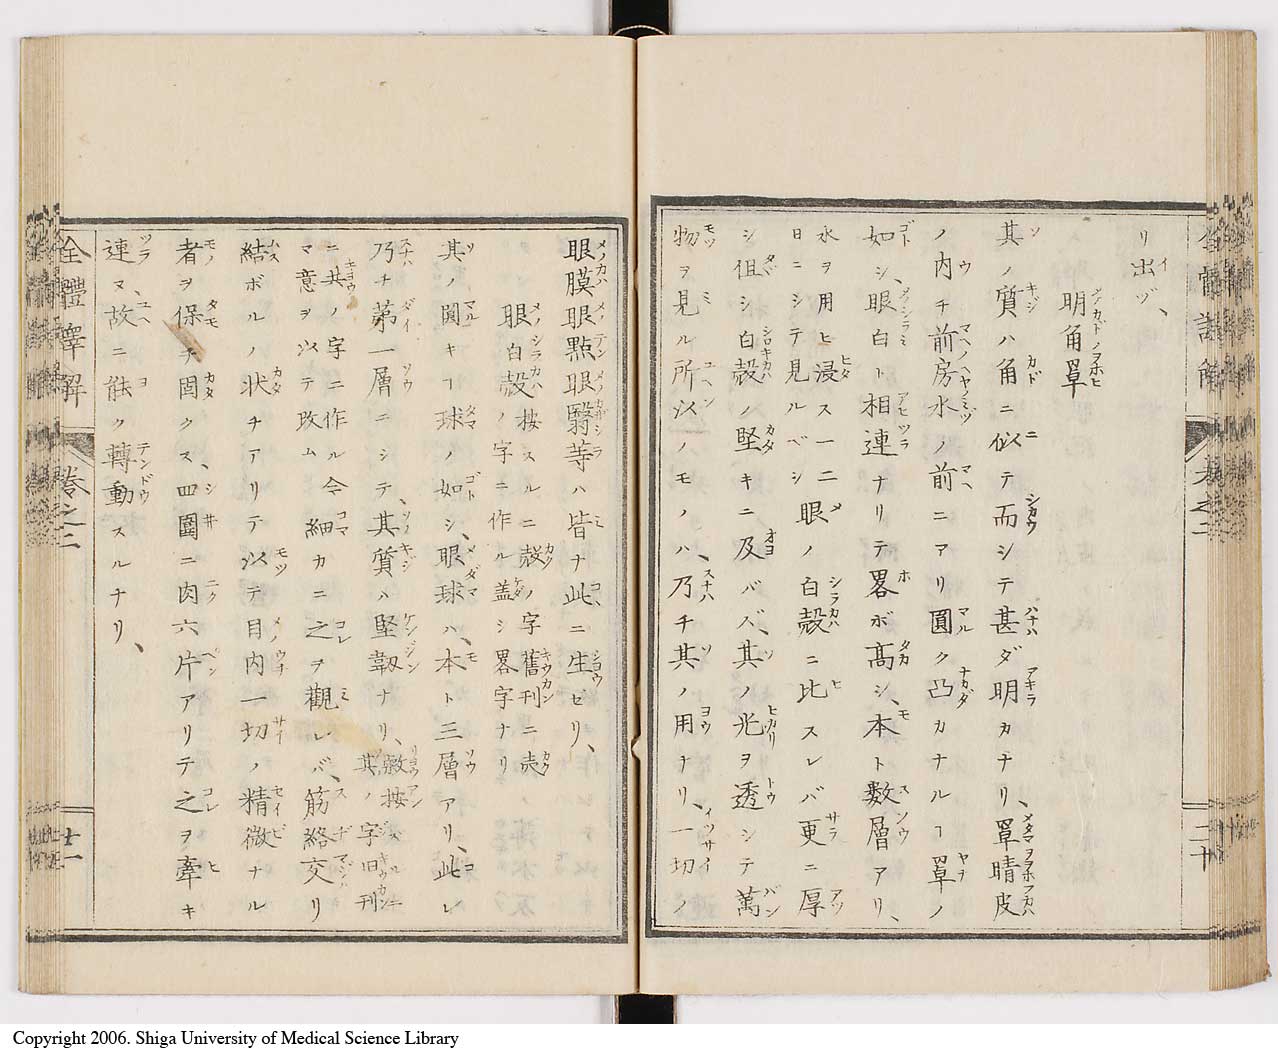 リ出ヅ、
明角罩
其ノ質ハ角ニ似テ而シテ甚ダ明カナリ、罩睛皮
ノ内チ前房水ノ前ニアリ圓ク凸カナルヿ罩ノ
如シ、眼白ト相連ナリテ畧ボ高シ、本ト数層アリ、
水ヲ用ヒ浸ス一二
日ニシテ見ルベシ
眼ノ白殻ニ比スレバ更ニ厚
シ但シ白殻ノ堅キニ及ババ、其ノ光ヲ透シテ萬
物ヲ見ル所以ノモノハ、乃チ其ノ用ナリ、一切ノ
二十
眼膜眼點眼翳等ハ皆ナ此ニ生ゼリ、
眼白殻
按スルニ殻ノ字舊刊ニ売
ノ字ニ作ル盖シ畧字ナリ
其ノ圓キヿ球ノ如シ、眼球ハ、本ト三層アリ、此レ
乃チ苐一層ニシテ、其質ハ堅韌ナリ、
其ノ字旧刊
ニ共ノ字ニ作ル今
マ意ヲ以テ改ム
細カニ之ヲ觀レバ、筋絡交リ
結ボルノ状チアリテ以テ目内一切ノ精微ナル
者ヲ保チ固クス、四圍ニ肉六片アリテ之ヲ牽キ
連ヌ故ニ能ク轉動スルナリ、
全體譯解
巻之二
Copyright 2006. Shiga University of Medical Science Library